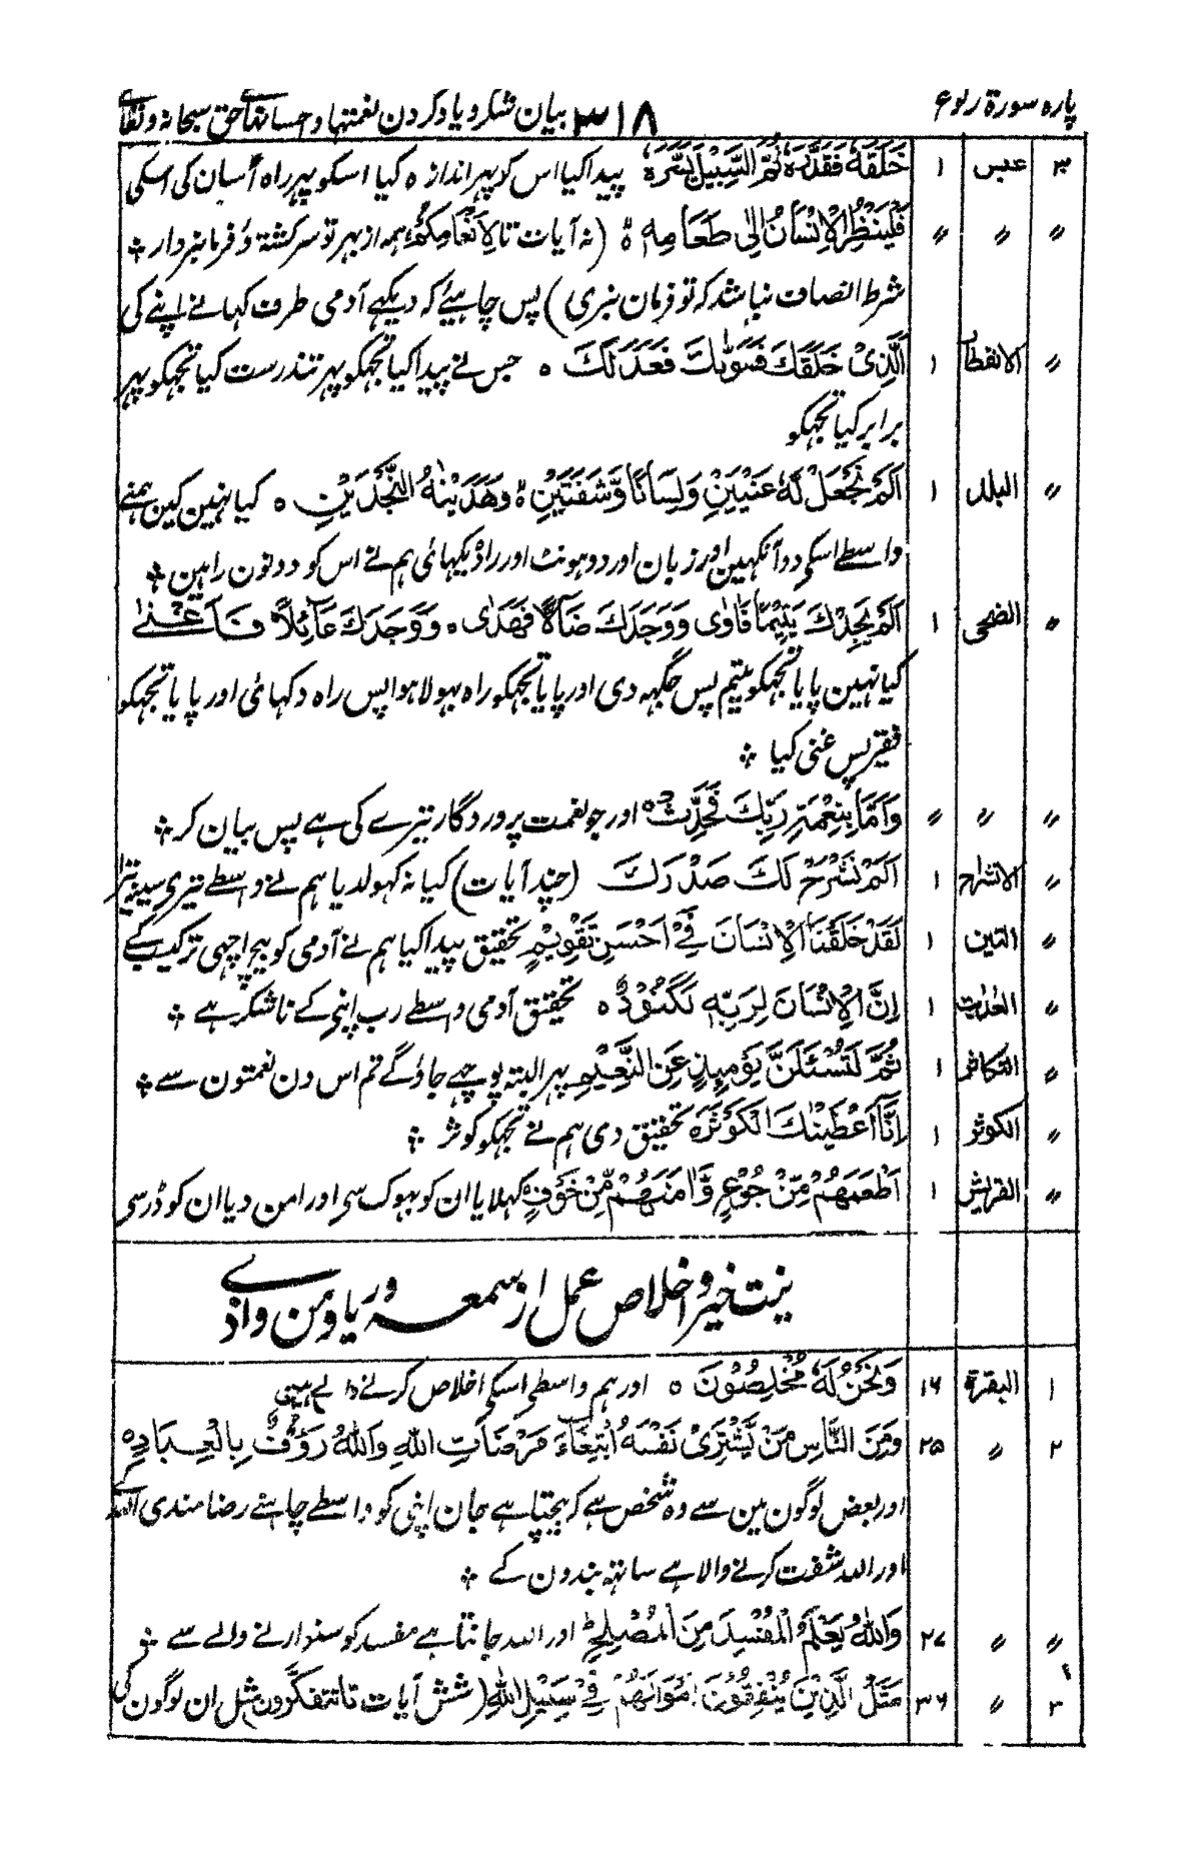 پارہ سورۃ رکوع ۳۱۸ بیان شکر و یاد کردن نعمتہا و احسانہائے حق سبحانہ و تعالے
۳۰ عبس ۱ خَلَقَهٗ فَقَدَّرَهٗ ثُمَّ السَّبِيْلَ يَسَّرَهٗ پیدا کیا اس کو پہر اندازہ کیا اسکو پہر راہ آسان کی اسکی
〃 〃 〃 فَلْيَنْظُرِ الْاِنْسَانُ اِلٰى طَعَامِهٖ ۙ (نہ آیات تا لِاَنْعَامِكُمْ ہمہ از بہر تو سرگشتہ و فرمانبردار ؞
شرط انصاف نباشد کہ تو فرمان نبری) پس چاہیئے کہ دیکہے آدمی طرف کہانے اپنے کی
〃 الانفطار ۱ الَّذِىْ خَلَقَكَ فَسَوّٰىكَ فَعَدَلَكَ ہ جس نے پیدا کیا تجہکو پہر تندرست کیا تجہکو پہر
برابر کیا تجہکو
〃 البلد ۱ اَلَمْ نَجْعَلْ لَهٗ عَيْنَيْنِ وَلِسَانًا وَّشَفَتَيْنِ ۙ وَهَدَيْنٰهُ النَّجْدَيْنِ ہ کیا نہین کین ہمنے
واسطے اسکی دو آنکہین اور زبان اور دو ہونٹ اور راہ دیکہائی ہم نے اس کو دونون راہین ؞
〃 الضحی ۱ اَلَمْ يَجِدْكَ يَتِيْمًا فَاٰوٰى وَوَجَدَكَ ضَآلًّا فَهَدٰى ہ وَوَجَدَكَ عَآئِلًا فَاَغْنٰى
کیا نہین پایا تجہکو یتیم پس جگہہ دی اور پایا تجہکو راہ بہولا ہوا پس راہ دکہائی اور پایا تجہکو
فقیر پس غنی کیا ؞
〃 〃 〃 وَاَمَّا بِنِعْمَةِ رَبِّكَ فَحَدِّثْ ہ اور جو نعمت پروردگار تیرے کی ہے پس بیان کر ؞
〃 الانشراح ۱ اَلَمْ نَشْرَحْ لَكَ صَدْرَكَ (چند آیات) کیا نہ کہولدیا ہم نے واسطے تیری سینہ تیرا
〃 التین ۱ لَقَدْ خَلَقْنَا الْاِنْسَانَ فِىْٓ اَحْسَنِ تَقْوِيْمٍ تحقیق پیدا کیا ہم نے آدمی کو بیچ اچہی ترکیب کے
〃 العٰدیٰت ۱ اِنَّ الْاِنْسَانَ لِرَبِّهٖ لَكَنُوْدٌ ہ تحقیق آدمی واسطے رب اپنی کے ناشکر ہے ؞
〃 التکاثر ۱ ثُمَّ لَتُسْـئَلُنَّ يَوْمَئِذٍ عَنِ النَّعِيْمِ پہر البتہ پوچہے جاؤگے تم اس دن نعمتون سے ؞
〃 الکوثر ۱ اِنَّآ اَعْطَيْنٰكَ الْكَوْثَرَ ہ تحقیق دی ہم نے تجہکو کوثر ؞
〃 القریش ۱ اَطْعَمَهُمْ مِّنْ جُوْعٍ وَّاٰمَنَهُمْ مِّنْ خَوْفٍ کہلایا ان کو بہوک سی اور امن دیا ان کو ڈر سی
نیت خیر و اخلاص عمل از سمعہ و ریا و من و اذے
۱ البقرۃ ۱۶ وَنَحْنُ لَهٗ مُخْلِصُوْنَ ہ اور ہم واسطی اسکی اخلاص کرنے والے ہین
۲ 〃 ۲۵ وَمِنَ النَّاسِ مَنْ يَّشْرِىْ نَفْسَهُ ابْتِغَآءَ مَرْضَاتِ اللّٰهِ وَاللّٰهُ رَؤُفٌۢ بِالْعِبَادِ ہ
اور بعض لوگون مین سے وہ شخص ہے کہ بیچتا ہے جان اپنی کو واسطے چاہنے رضامندی اللہ کے
اور اللہ شفقت کرنے والا ہے ساتہہ بندون کے ؞
〃 〃 ۲۷ وَاللّٰهُ يَعْلَمُ الْمُفْسِدَ مِنَ الْمُصْلِحِ ؕ اور اللہ جانتا ہے مفسد کو سنوارنے والے سے ؞
۳ 〃 ۳۶ مَثَلُ الَّذِيْنَ يُنْفِقُوْنَ اَمْوَالَهُمْ فِىْ سَبِيْلِ اللّٰهِ (شش آیات تا تتفکرون) مثل ان لوگون کی